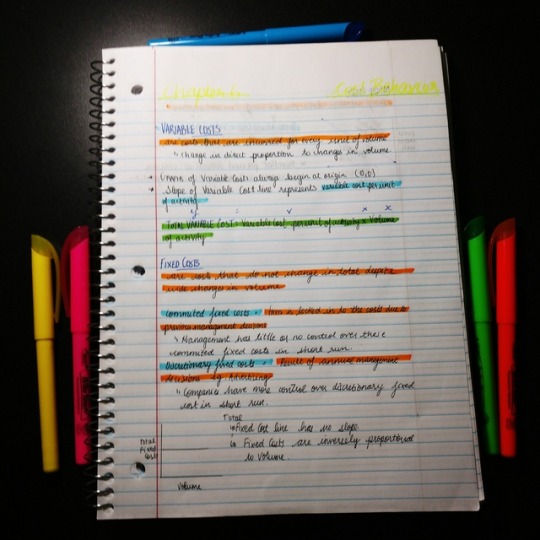 Chapter 6 Cost Behavior
VARIABLE COSTS
are costs that are incurred for every unit of volume
↳ change in direct proportion to changes in volume
• Graphs of Variable Costs always begin at origin (0,0)
• Slope of Variable Cost line represents variable cost per unit
of activity
y = v x x
TOTAL VARIABLE COST = Variable Cost per unit of activity x Volume
of activity
FIXED COSTS
are costs that do not change in total despite
wide changes in volume
committed fixed costs - is locked in to the costs due to
previous management decisions
↳ Management has little or no control over these
committed fixed costs in short run.
Discretionary fixed costs - Result of annual management
decisions eg. Advertising
↳ Companies have more control over discretionary fixed
cost in short run.
Total
↳ Fixed Cost line has no slope
↳ Fixed Costs are inversely proportional
to Volume.
Total
Fixed
Cost
Volume